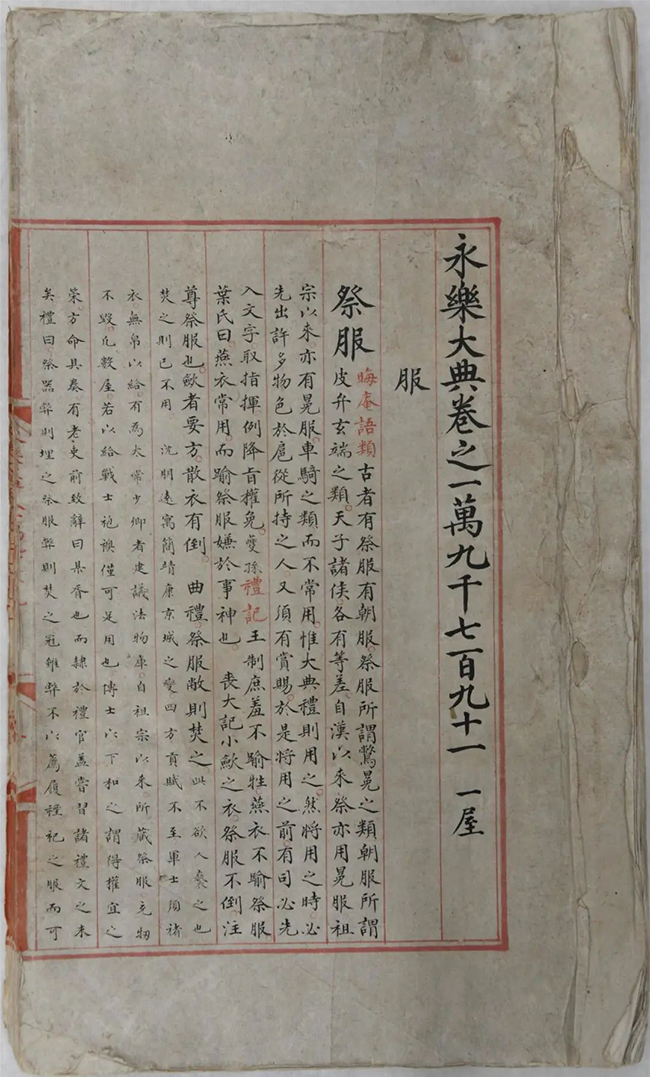 永樂大典卷之一萬九千七百九十一 一屋
服
祭服 晦庵語類古者有祭服有朝服祭服所謂鷩冕之類朝服所謂
皮弁玄端之類天子諸侯各有等差自漢以來祭亦用冕服祖
宗以來亦有冕服車騎之類而不常用惟大典禮則用之然將用之時必
先出許多物色於扈從所持之人又須有賞賜於是將用之前有司必先
入文字取指揮例降旨權免夔孫禮記王制庶羞不踰牲燕衣不踰祭服
葉氏曰燕衣常用而踰祭服嫌於事神也 喪大記小斂之衣祭服不倒注
尊祭服也斂者要方散衣有倒 曲禮祭服敝則焚之此不欲人褻之也
焚之則已不用 沈明遠寓簡靖康京城之變四方貢賦不至軍士須褚
衣無帛以給有為太常少卿者建議法物庫自祖宗以來所藏祭服充物
不毀凡數屋若以給戰士袍襖僅可足用也博士以下和之謂得權宜之
策方命具奏有老吏前致辭曰某胥也而隸於禮官蓋嘗習諸禮文之末
矣禮曰祭器弊則埋之祭服弊則焚之冠雖弊不以薦履禋祀之服而可